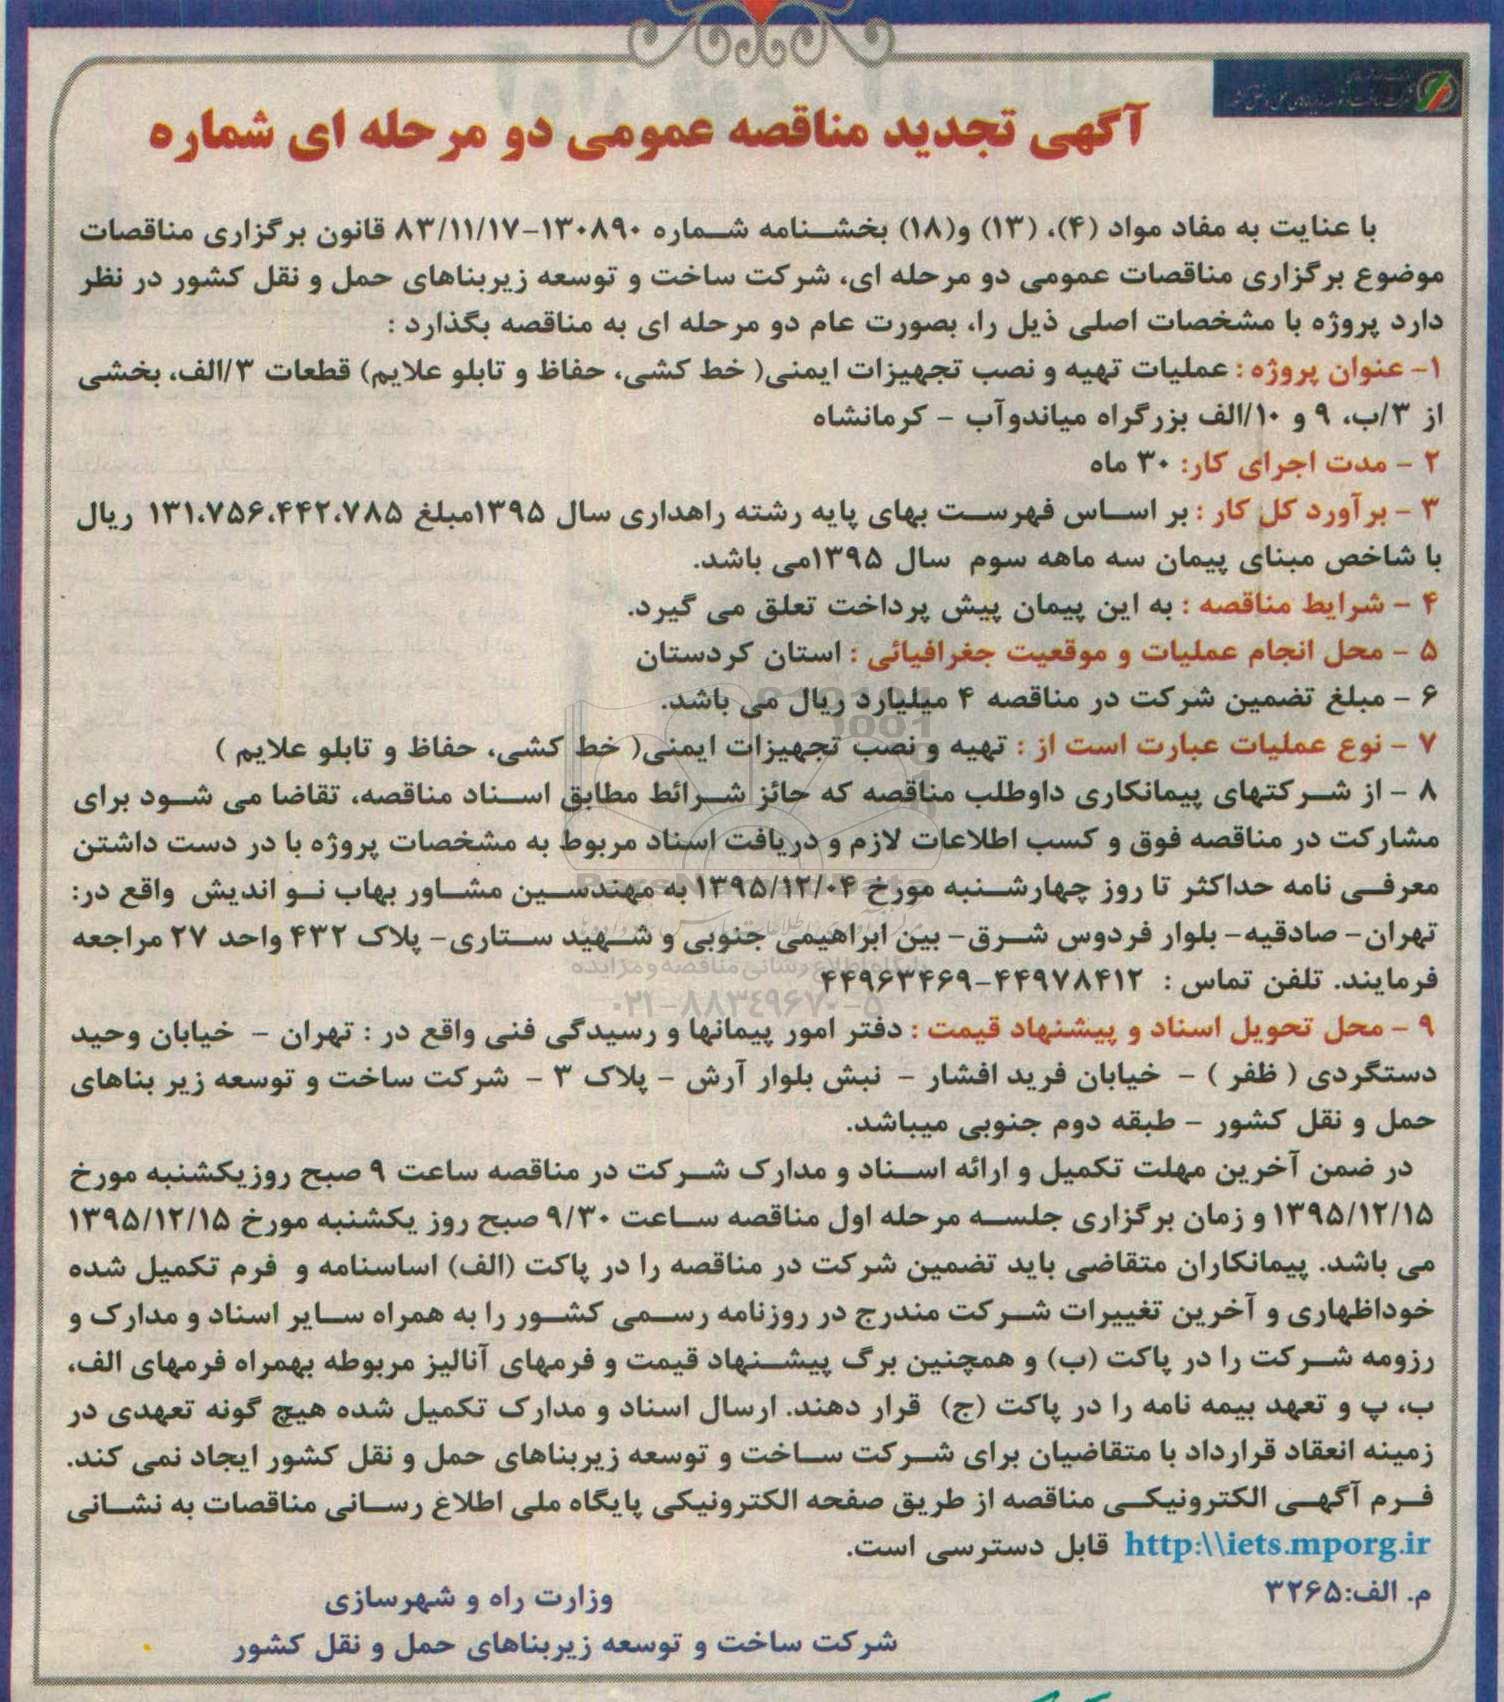 آگهی تجدید مناقصه عمومی دو مرحله ای شماره
با عنایت به مفاد مواد (۴)، (۱۳) و(۱۸) بخشنامه شماره ۱۳۰۸۹۰-۸۳/۱۱/۱۷ قانون برگزاری مناقصات
موضوع برگزاری مناقصات عمومی دو مرحله ای، شرکت ساخت و توسعه زیربناهای حمل و نقل کشور در نظر
دارد پروژه با مشخصات اصلی ذیل را، بصورت عام دو مرحله ای به مناقصه بگذارد :
۱- عنوان پروژه : عملیات تهیه و نصب تجهیزات ایمنی( خط کشی، حفاظ و تابلو علایم) قطعات ۳/الف، بخشی
از ۳/ب، ۹ و ۱۰/الف بزرگراه میاندوآب - کرمانشاه
۲ - مدت اجرای کار: ۳۰ ماه
۳ - برآورد کل کار : بر اساس فهرست بهای پایه رشته راهداری سال ۱۳۹۵مبلغ ۱۳۱،۷۵۶،۴۴۲،۷۸۵ ریال
با شاخص مبنای پیمان سه ماهه سوم سال ۱۳۹۵می باشد.
۴ - شرایط مناقصه : به این پیمان پیش پرداخت تعلق می گیرد.
۵ - محل انجام عملیات و موقعیت جغرافیائی : استان کردستان
۶ - مبلغ تضمین شرکت در مناقصه ۴ میلیارد ریال می باشد.
۷ - نوع عملیات عبارت است از : تهیه و نصب تجهیزات ایمنی( خط کشی، حفاظ و تابلو علایم )
۸ - از شرکتهای پیمانکاری داوطلب مناقصه که حائز شرائط مطابق اسناد مناقصه، تقاضا می شود برای
مشارکت در مناقصه فوق و کسب اطلاعات لازم و دریافت اسناد مربوط به مشخصات پروژه با در دست داشتن
معرفی نامه حداکثر تا روز چهارشنبه مورخ ۱۳۹۵/۱۲/۰۴ به مهندسین مشاور بهاب نو اندیش واقع در:
تهران- صادقیه- بلوار فردوس شرق- بین ابراهیمی جنوبی و شهید ستاری- پلاک ۴۳۲ واحد ۲۷ مراجعه
فرمایند. تلفن تماس : ۴۴۹۷۸۴۱۲-۴۴۹۶۳۴۶۹
پایگاه اطلاع رسانی مناقصه و مزایده
۰۲۱-۸۸۳۴۹۶۷۰-۵
۹ - محل تحویل اسناد و پیشنهاد قیمت : دفتر امور پیمانها و رسیدگی فنی واقع در : تهران - خیابان وحید
دستگردی ( ظفر ) - خیابان فرید افشار - نبش بلوار آرش - پلاک ۳ - شرکت ساخت و توسعه زیر بناهای
حمل و نقل کشور - طبقه دوم جنوبی میباشد.
در ضمن آخرین مهلت تکمیل و ارائه اسناد و مدارک شرکت در مناقصه ساعت ۹ صبح روزیکشنبه مورخ
۱۳۹۵/۱۲/۱۵ و زمان برگزاری جلسه مرحله اول مناقصه ساعت ۹/۳۰ صبح روز یکشنبه مورخ ۱۳۹۵/۱۲/۱۵
می باشد. پیمانکاران متقاضی باید تضمین شرکت در مناقصه را در پاکت (الف) اساسنامه و فرم تکمیل شده
خوداظهاری و آخرین تغییرات شرکت مندرج در روزنامه رسمی کشور را به همراه سایر اسناد و مدارک و
رزومه شرکت را در پاکت (ب) و همچنین برگ پیشنهاد قیمت و فرمهای آنالیز مربوطه بهمراه فرمهای الف،
ب، پ و تعهد بیمه نامه را در پاکت (ج) قرار دهند. ارسال اسناد و مدارک تکمیل شده هیچ گونه تعهدی در
زمینه انعقاد قرارداد با متقاضیان برای شرکت ساخت و توسعه زیربناهای حمل و نقل کشور ایجاد نمی کند.
فرم آگهی الکترونیکی مناقصه از طریق صفحه الکترونیکی پایگاه ملی اطلاع رسانی مناقصات به نشانی
http:\\iets.mporg.ir قابل دسترسی است.
م. الف:۳۲۶۵
وزارت راه و شهرسازی
شرکت ساخت و توسعه زیربناهای حمل و نقل کشور